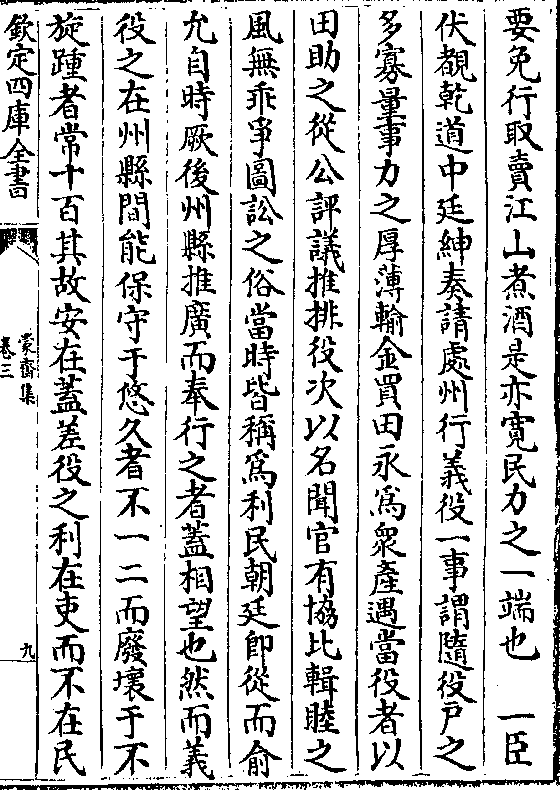 要免行取賣江山煮酒是亦寛民力之一端也　一臣
伏覩乾道中廷紳奏請處州行義役一事謂隨役戸之
多寡量事力之厚薄輸金買田永爲衆產遇當役者以
田助之從公評議推排役次以名聞官有協比輯睦之
風無乖爭圖訟之俗當時皆稱爲利民朝廷即從而俞
允自時厥後州縣推廣而奉行之者蓋相望也然而義
役之在州縣間能保守于悠久者不一二而廢壞于不
旋踵者常十百其故安在蓋差役之利在吏而不在民
欽定四庫全書
蒙齋集
卷三
九